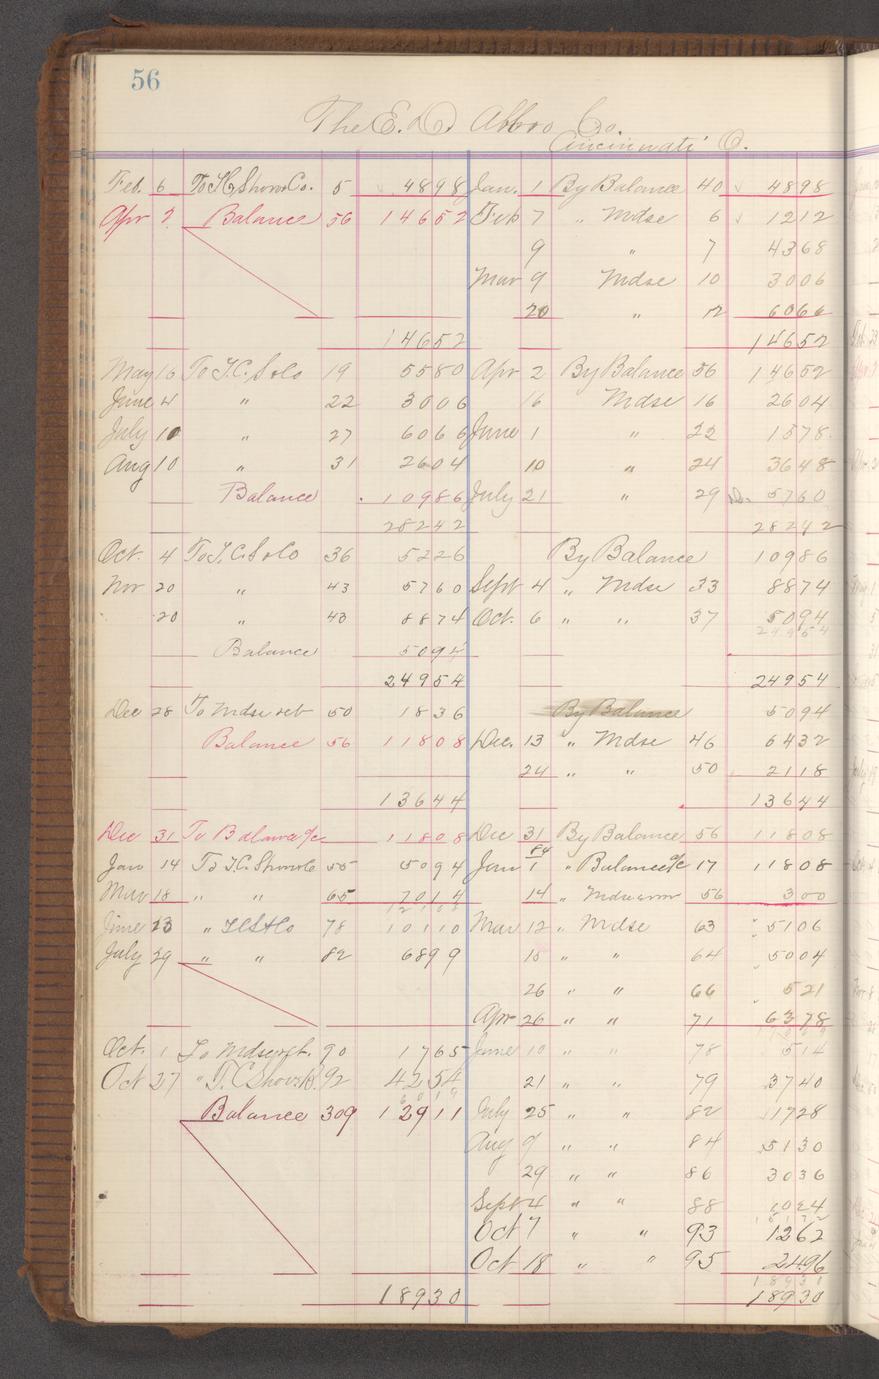 56
The E. D. Albro Co.
Cincinnati O.
Feb. 6 To T.C. Shove Co. 5 4898 Jan. 1 By Balance 40 4898
Apr 2 Balance 56 14652 Feb 7 " Mdse 6 1212
9 " 7 4368
Mar 9 Mdse 10 3006
20 " 12 6066
14652 14652
May 16 To T.C. S. & Co 19 5580 Apr 2 By Balance 56 14652
June 4 " 22 3006 16 Mdse 16 2604
July 10 " 27 6066 June 1 " 22 1578
Aug 10 " 31 2604 10 " 24 3648
Balance 10986 July 21 " 29 5760
28242 28242
Oct. 4 To T.C. S & Co 36 5226 By Balance 10986
Nov 20 " 43 5760 Sept 4 " Mdse 33 8874
20 " 43 8874 Oct. 6 " " 37 5094
24954
Balance 5094
24954 24954
Dec 28 To Mdse ret 50 1836 By Balance 5094
Balance 56 11808 Dec. 13 " Mdse 46 6432
24 " " 50 2118
13644 13644
Dec 31 To Balance a/c 11808 Dec 31 By Balance 56 11808
84
Jan 14 To T.C. Shove Co 55 5094 Jan 1 " Balance a/c 17 11808
Mar 18 " " 65 7014 14 " Mdse 56 300
12108
June 23 " T.C.S & Co 78 10110 Mar 12 " Mdse 63 5106
July 29 " " 82 6899 15 " " 64 5004
26 " " 66 521
Apr 26 " " 71 6378
Oct. 1 To Mdse ret. 90 1765 June 10 " " 78 514
Oct 27 " T.C. Shove Co. 92 4254 21 " " 79 3740
6019
Balance 309 12911 July 25 " " 82 1728
Aug 9 " " 84 5130
29 " " 86 3036
Sept 4 " " 88 1024
Oct 7 " " 93 1262
Oct 18 " " 95 2496
18931
18930 18930